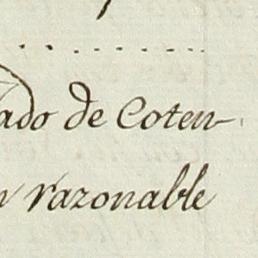 ado de Coten-
n razonable